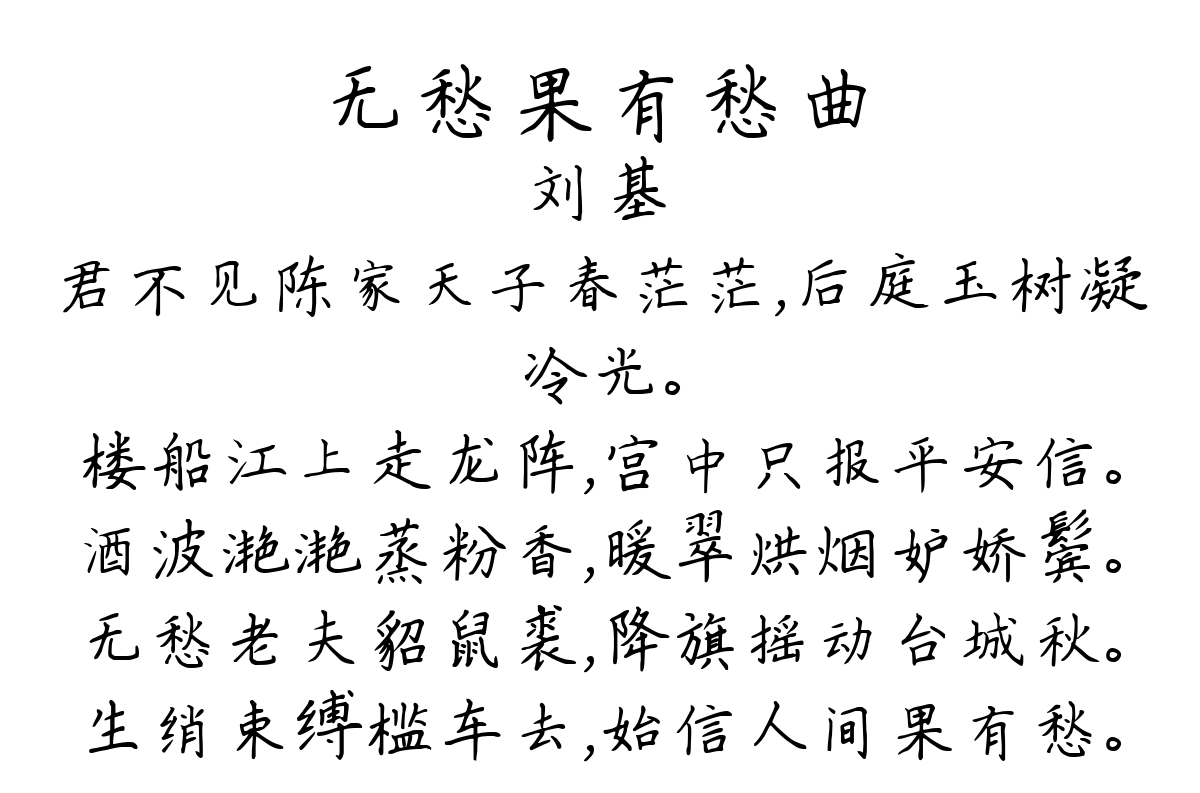 无愁果有愁曲
刘基
君不见陈家天子春茫茫,后庭玉树凝
冷光。
楼船江上走龙阵,宫中只报平安信。
酒波滟滟蒸粉香,暖翠烘烟妒娇鬓。
无愁老夫貂鼠裘,降旗摇动台城秋。
生绡束缚槛车去,始信人间果有愁。